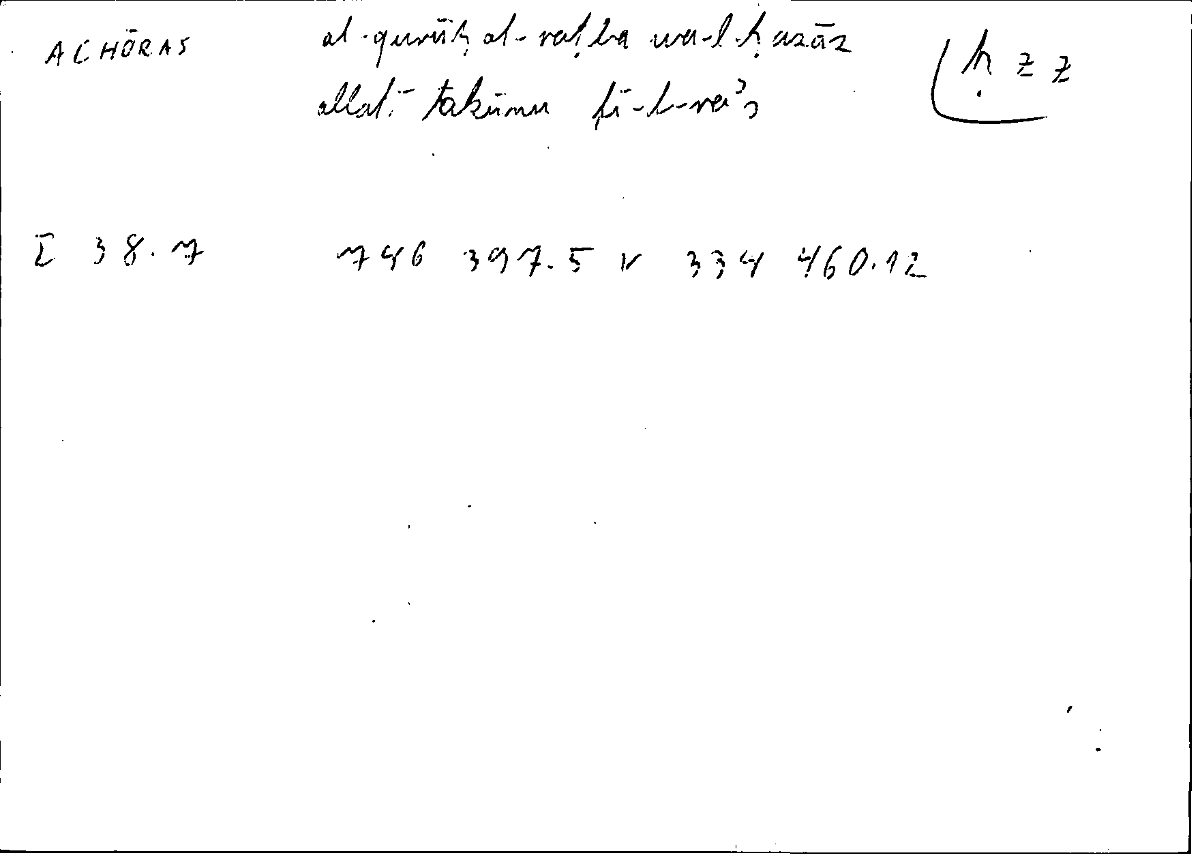 ACHŌRAS al-qurūḥ al-raṭba wa-l-ḥazāz ḥ z z
allatī takūnu fī-l-ra's
I 38.7 746 397.5 v 334 460.12